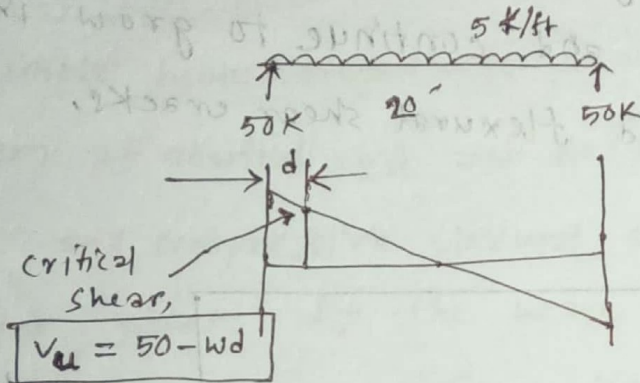 5 K/ft
20'
50K
50K
d
critical
shear,
Vu = 50 - wd